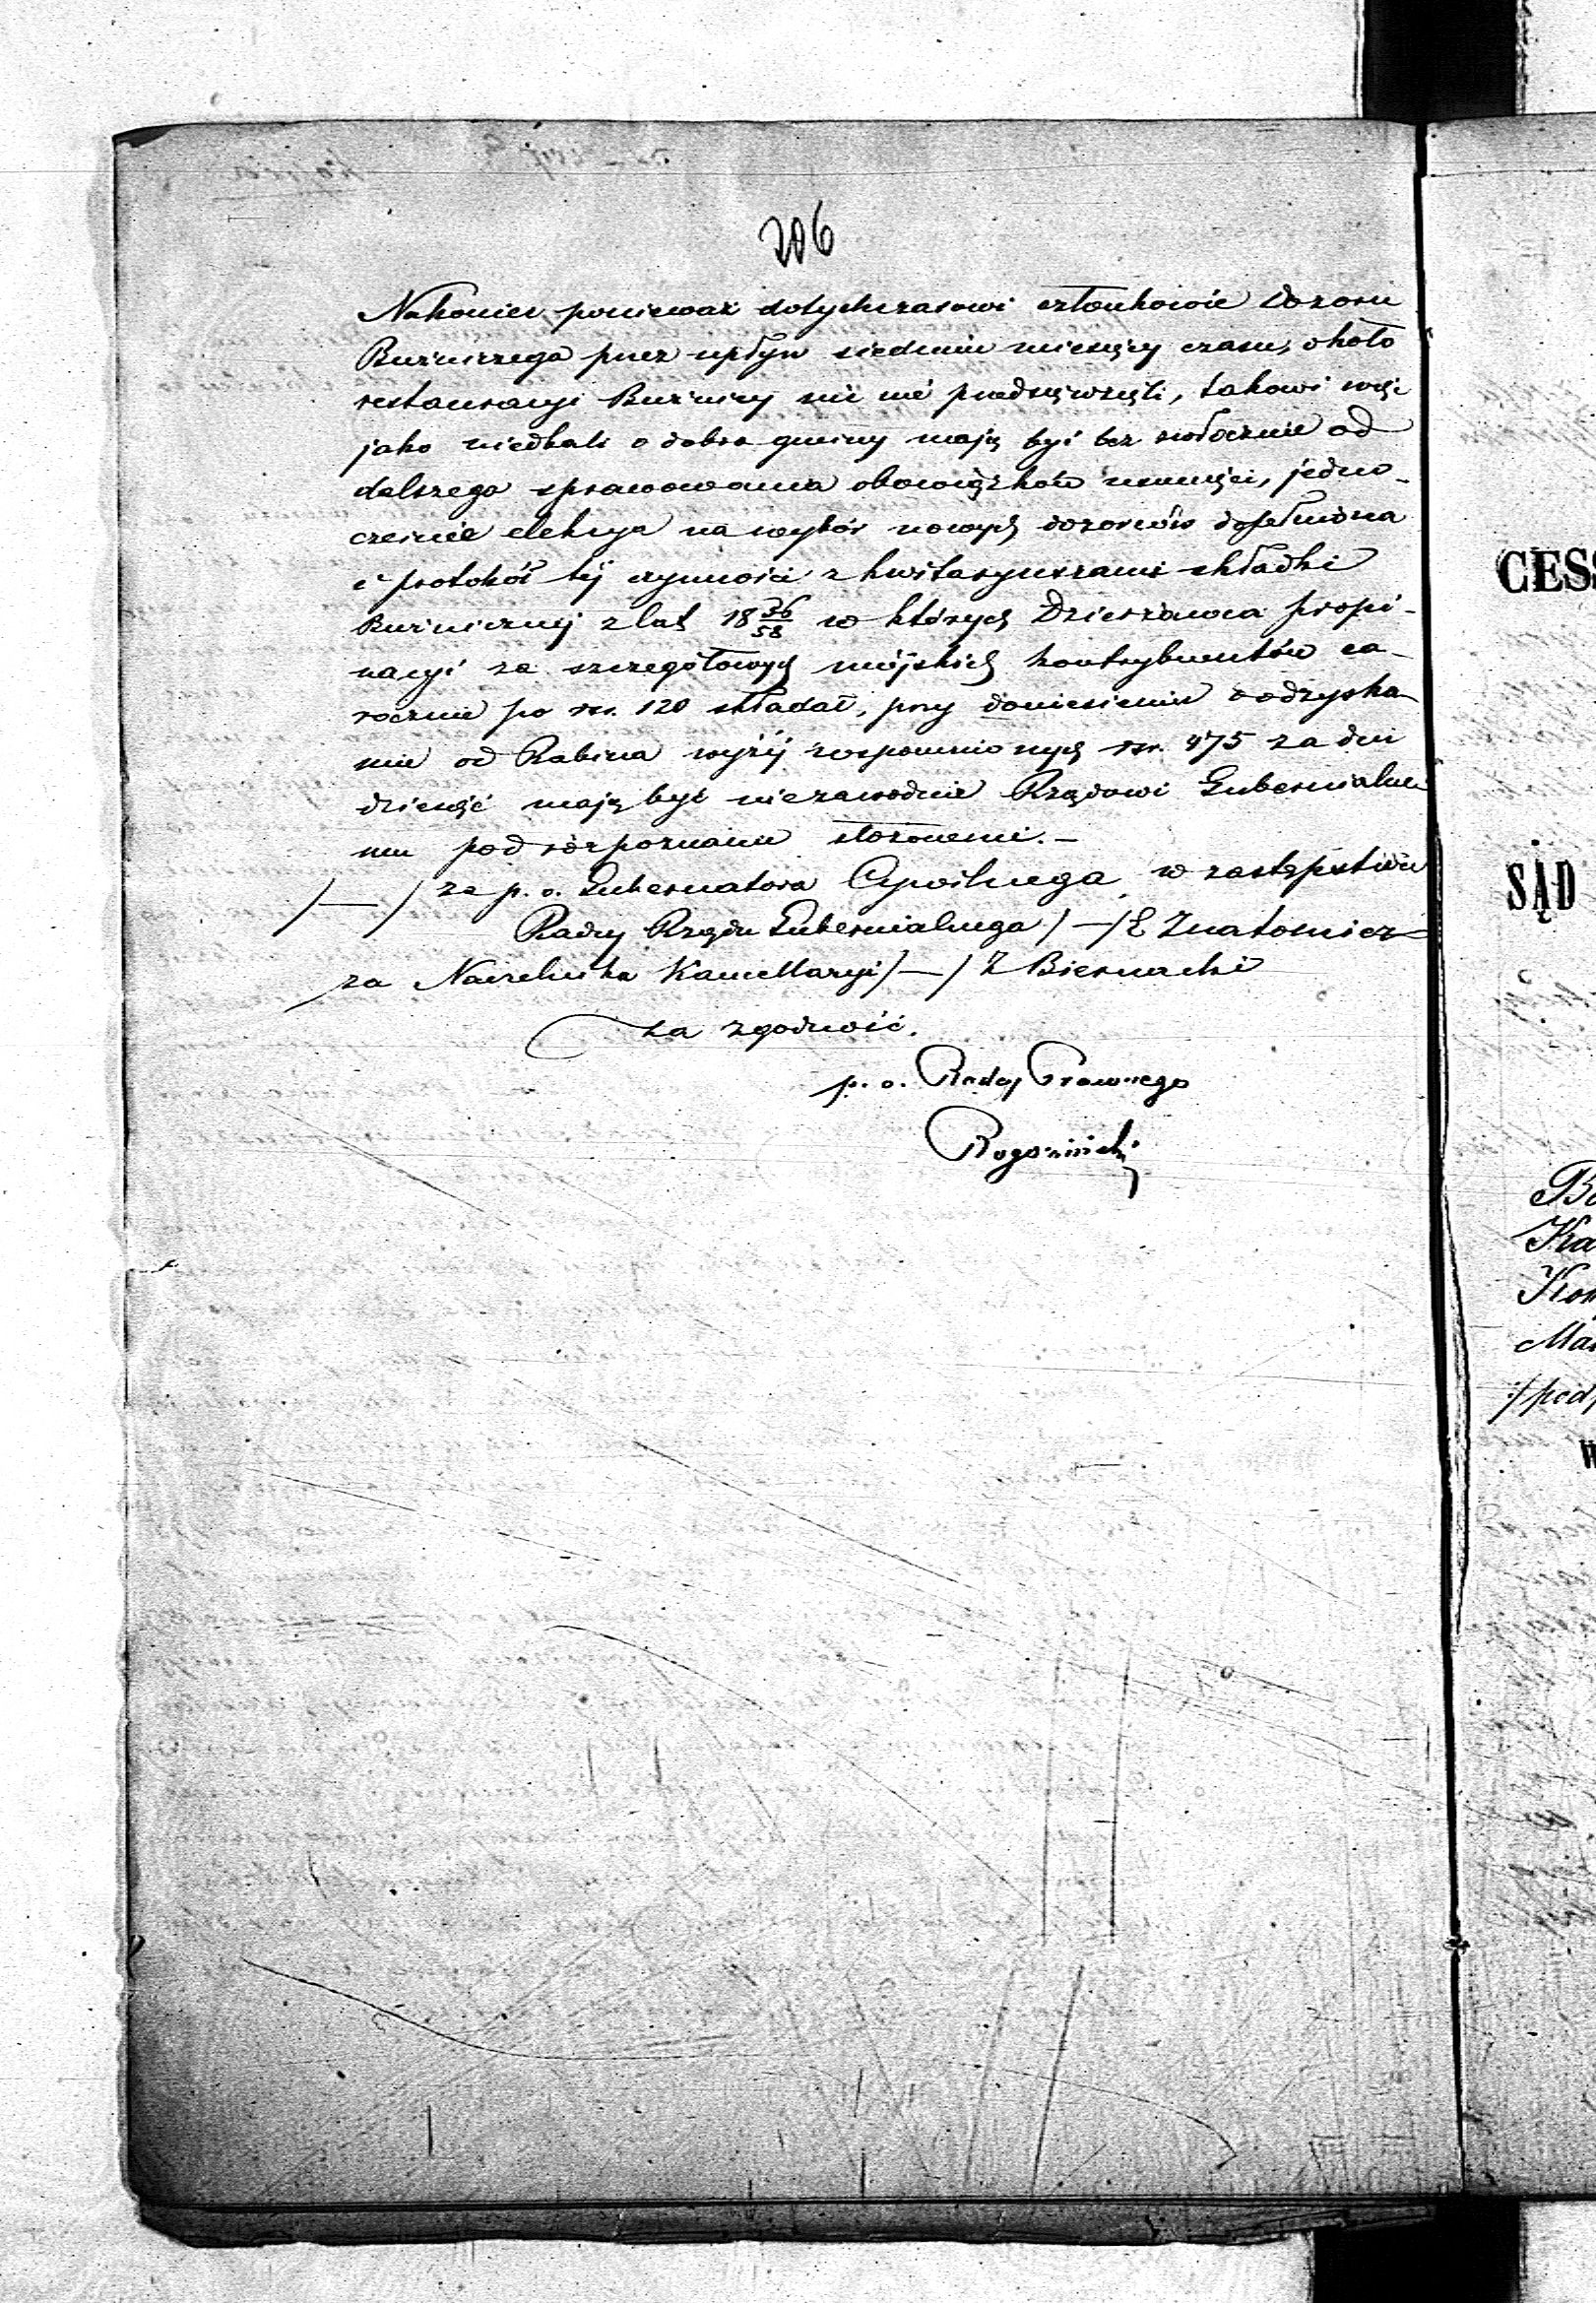 206
Nakoniec ponieważ dotychczasowi członkowie Dozoru
Bużniczego przez upływ siedmiu miesięcy czasu, około
restauracyi Bużnicy nic nie przedsięwzięli, takowi więc
jako niedbali o dobro gminy mają być bezzwłocznie od
dalszego sprawowania obowiązków usunięci, jedno-
cześnie elekcya na wybór nowych dozorców dopełniona
i protokół tej czynności z kwitaryuszami składki
Bużnicznej z lat 18 36/58 w których Dzierżawca propi-
nacyi za szczegółowych miejskich kontrybuentów co-
rocznie po rsr. 120 składał, przy doniesieniu o odzyska-
nie od Rabina wyżej wspomnionych rsr. 475 za dni
dziesięć mają być niezawodnie Rządowi Gubernialne-
mu pod rozpoznanie złożonemi.-
/—/ za p. o. Gubernatora Cywilnego, w zastępstwie
Radcy Rządu Gubernialnego /—/
za Naczelnika Kancellaryi /—/ Biernacki
za zgodność.
p. o. Radcy Prawnego
Rogoziński
CES
SĄD
Bo
Ka
Kom
Mar
:/pod
W